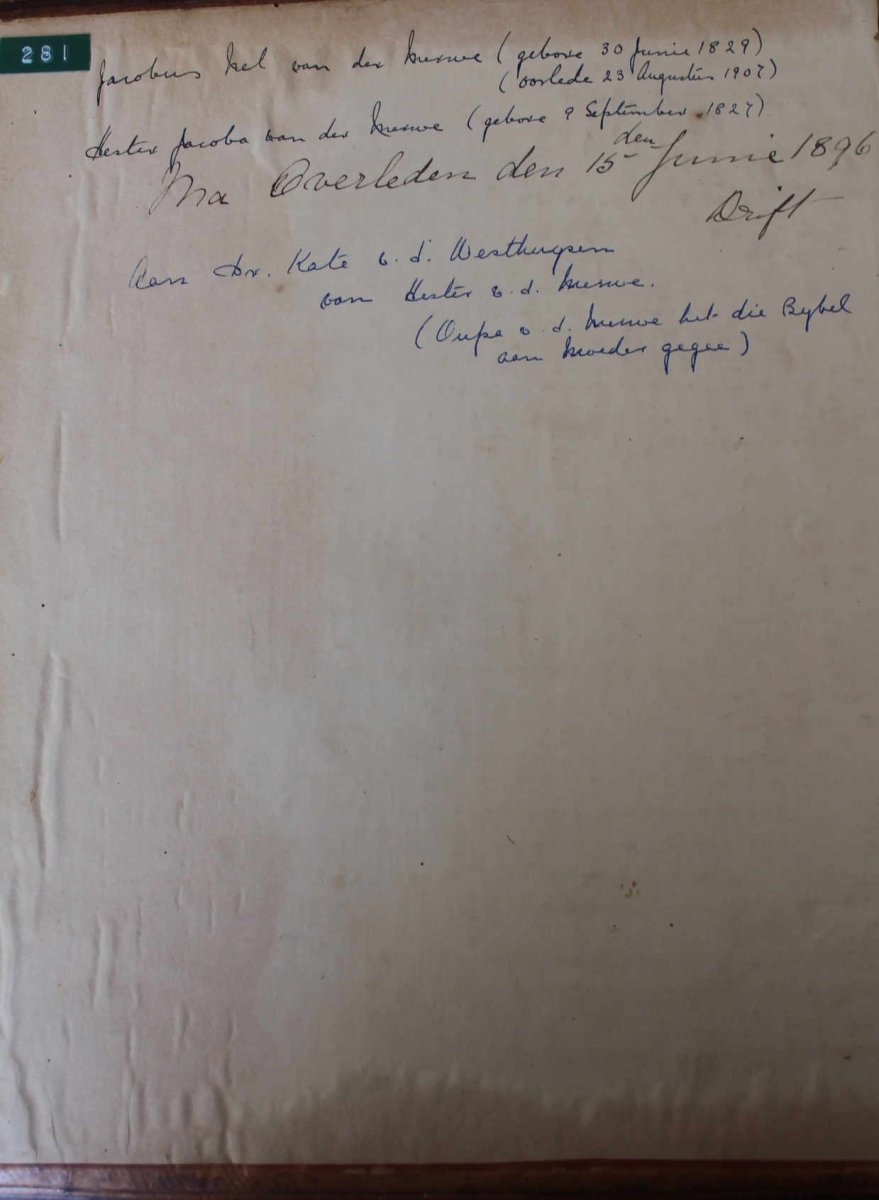 281
Jacobus Nel van der Merwe (gebore 30 Junie 1829)
(oorlede 23 Augustus 1907)
Hester Jacoba van der Merwe (gebore 9 September 1827)
Ma Overleden den 15 den Junie 1896
Drift
Aan Dr. Kate v. d. Westhuysen
van Hester v. d. Merwe.
(Oupa v. d. Merwe het die Bybel
aan Moeder gegee)